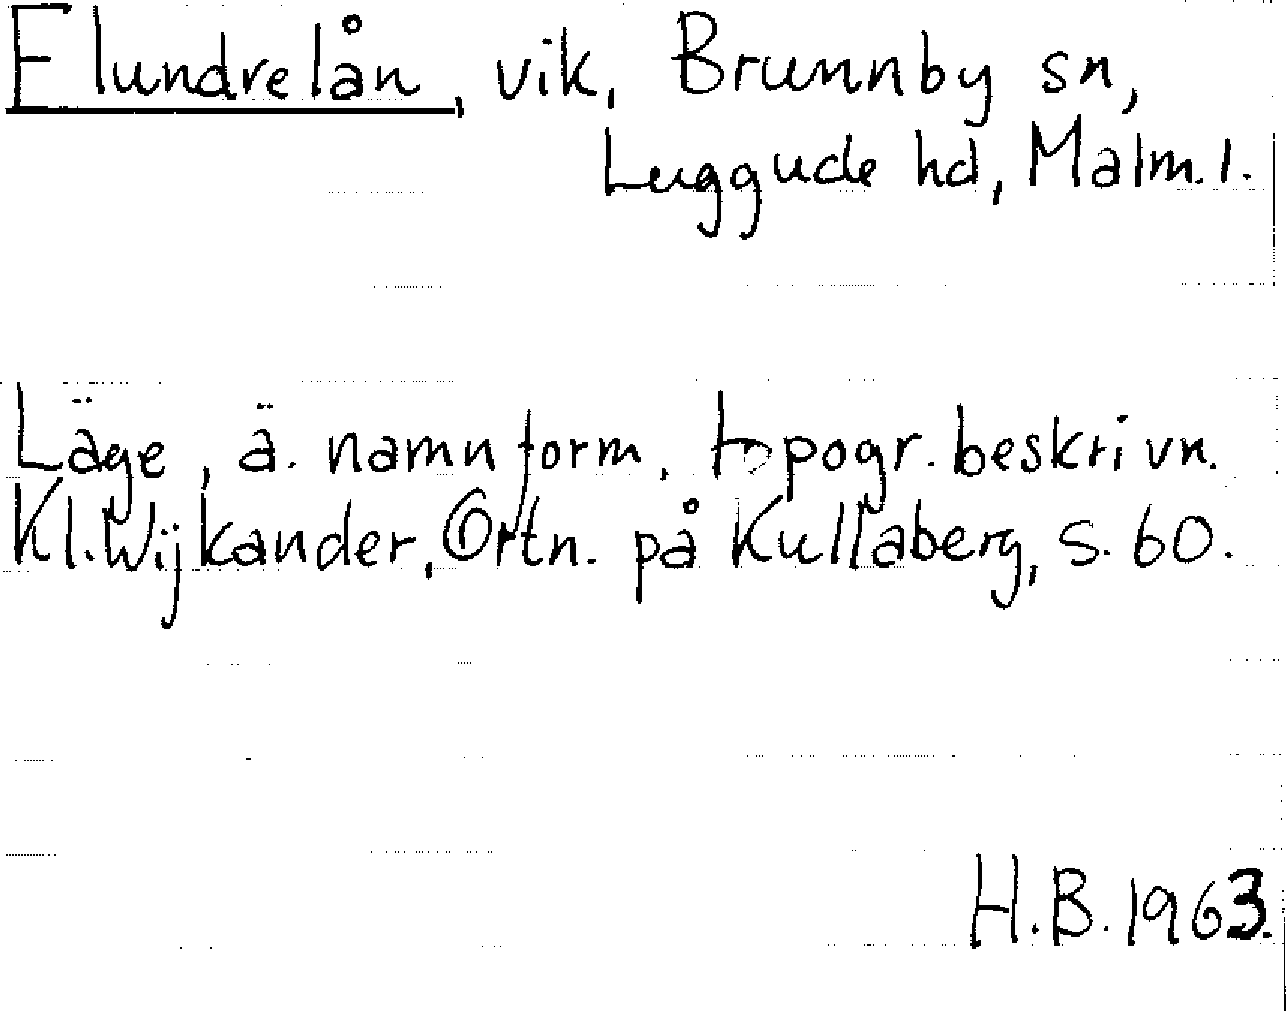 Flundrelån, vik, Brunnby sn,
Luggude hd, Malm. l.
Läge, ä. namnform, topogr. beskrivn.
Kl. Wijkander, Ortn. på Kullaberg, s. 60.
H.B. 1963.